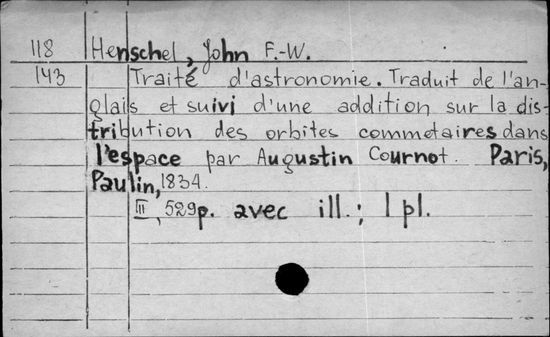 118 Henschel, John F.-W.
143 Traité d'astronomie. Traduit de l'an-
glais et suivi d'une addition sur la dis-
tribution des orbites commetaires dans
l'espace par Augustin Cournot. Paris,
Paulin, 1834.
III, 529p. avec ill.; 1 pl.